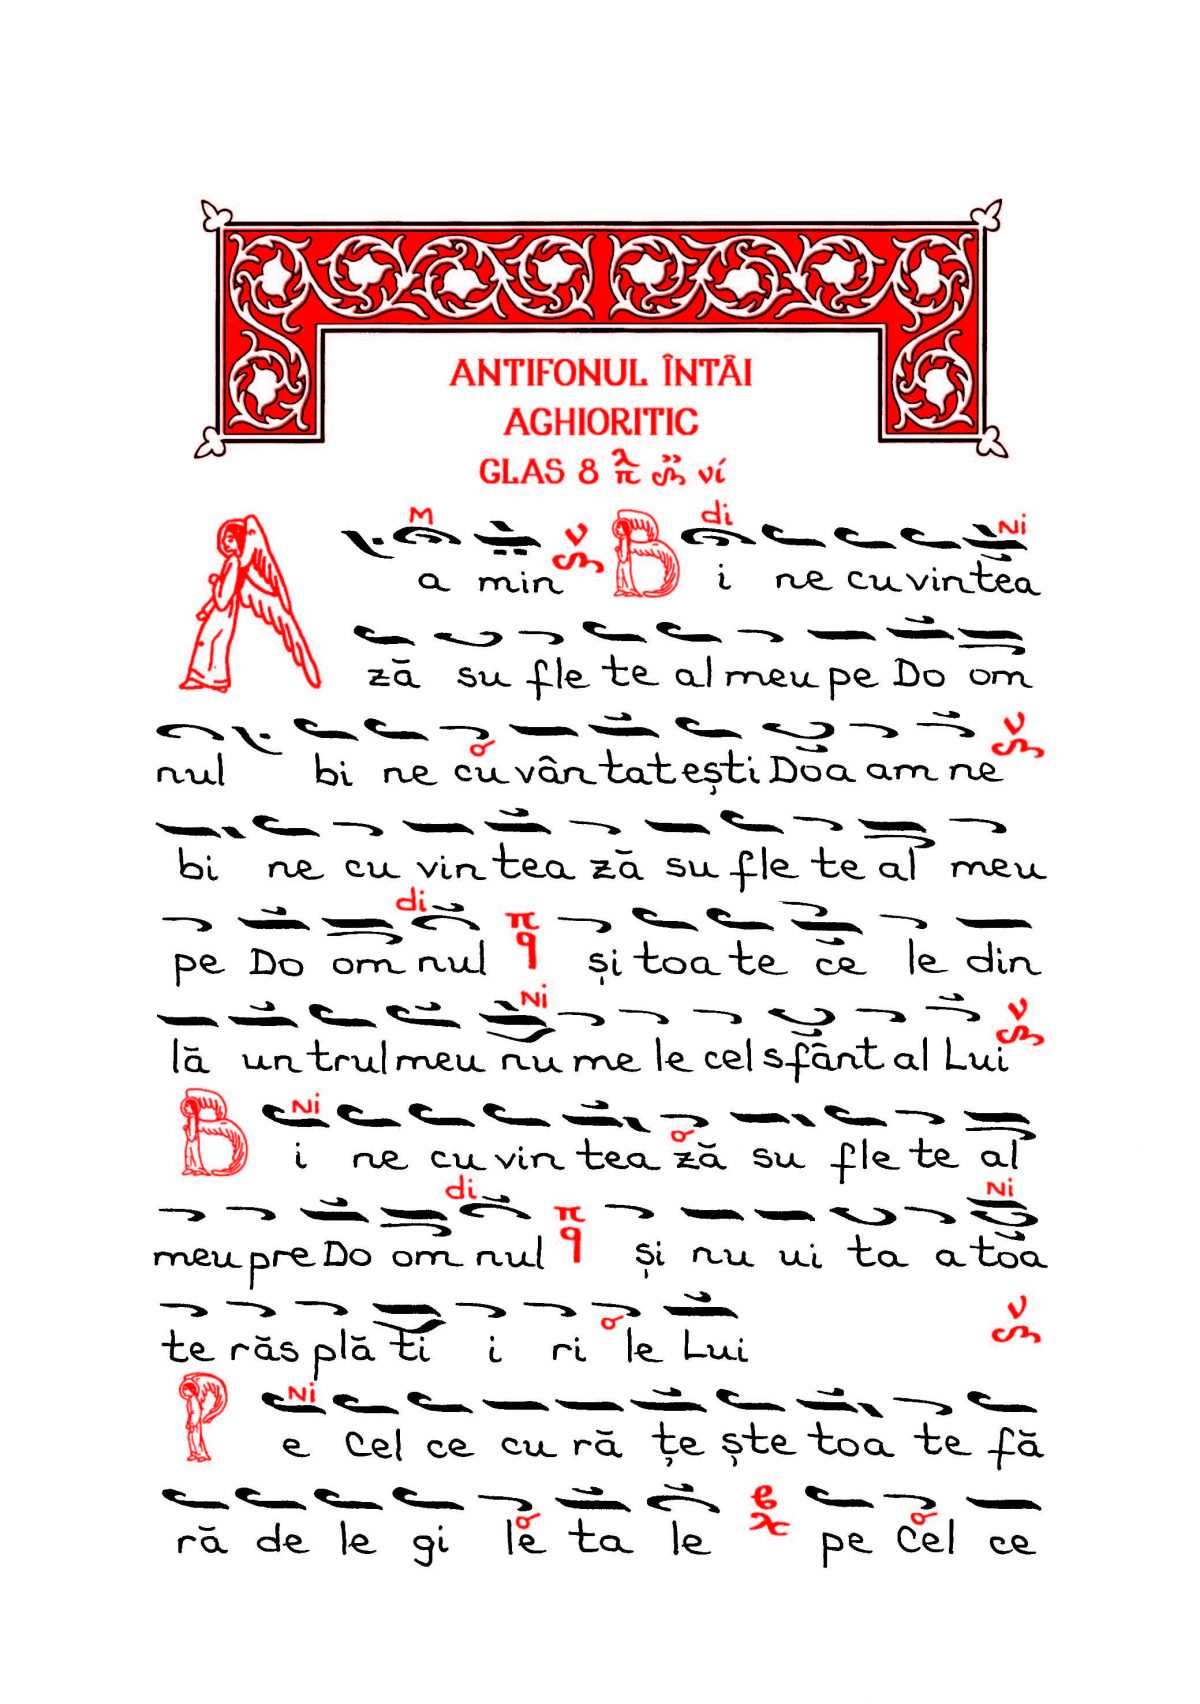 ANTIFONUL ÎNTÂI
AGHIORITIC
GLAS 8 λ π νί
M di Ni
A a min B i ne cu vin tea
ză su fle te al meu pe Do om
nul bi ne cu vân tat ești Doa am ne
bi ne cu vin tea ză su fle te al meu
di
pe Do om nul π q și toa te ce le din
Ni
lă un trul meu nu me le cel sfânt al Lui
Ni
B i ne cu vin tea ză su fle te al
di Ni
meu pre Do om nul π q și nu ui ta a toa
te răs plă ti i ri le Lui
Ni
P e Cel ce cu ră țe ște toa te fă
ră de le gi le ta le pe Cel ce